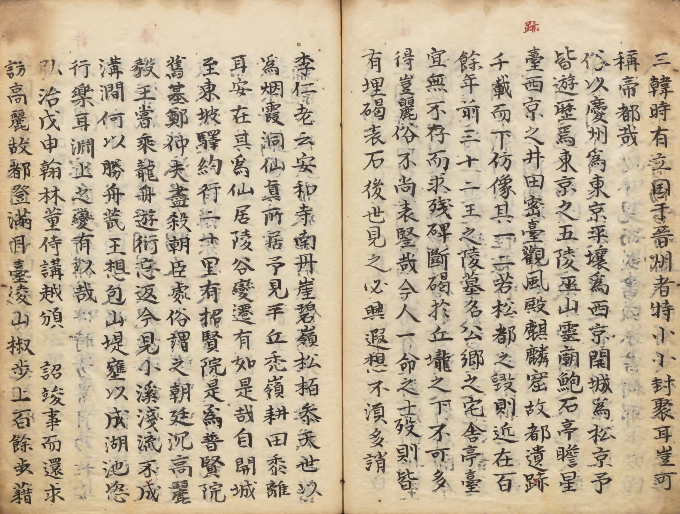 跡
三韓時有立国于晉州者特小小封聚耳豈可
稱帝都哉
俗以慶州爲東京平壤爲西京開城爲松京予
皆遊歷焉東京之五陵巫山靈廟鮑石亭瞻星
臺西京之井田密臺觀風殿麒麟窟故都遺跡
千載而下彷像其一二若松都之毀則近在百
餘年前三十二王之陵墓名公鄕之宅舍亭臺
宜無不存而求残碑斷碣於丘壠之下不可多
得豈麗俗不尚表竪哉今人一命之士歿則皆
有埋碣表石後世見之必興遐想不湏多誚
李仁老云安和寺南丹崖碧嶺松栢叅天世以
爲烟霞洞仙真所居予見平丘禿嶺耕田黍離
耳安在其爲仙居陵谷變遷有如是哉自開城
至東坡驛約行一十里有招賢院是爲普賢院
舊基鄭仲夫盡殺朝臣處俗謂之朝廷沉高麗
毅王嘗乘龍舟遊衍忘返今見小溪淺流不成
溝澗何以勝舟哉王想包山堤壅以成湖池恣
行樂耳淵止之變有以哉
弘治戊申翰林董侍講越頒 詔竣事而還求
訪高麗故都登滿月臺凌山椒步上百餘步藉